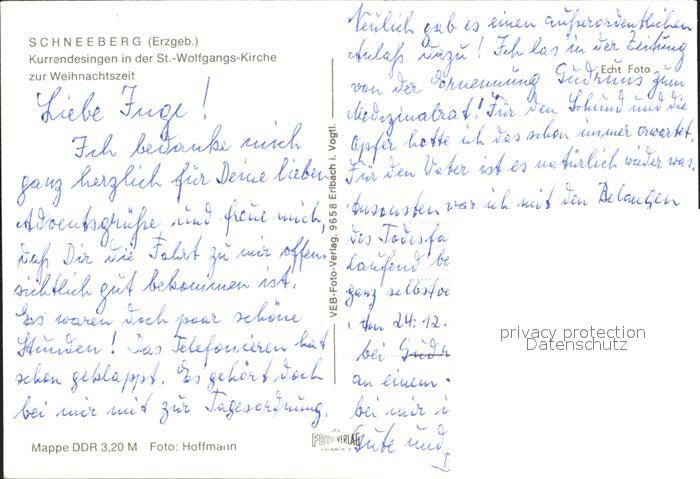 SCHNEEBERG (Erzgeb.)
Kurrendesingen in der St.-Wolfgangs-Kirche
zur Weihnachtszeit
Liebe Inge!
Ich bedanke mich
ganz herzlich für Deine lieben
Adventsgrüße, und freue mich,
daß Dir die Fahrt zu mir offen-
sichtlich gut bekommen ist.
Es waren doch paar schöne
Stunden! Das Telefonieren hat
schon geklappt. Es gehört doch
bei mir mit zur Tagesordnung.
Mappe DDR 3,20 M Foto: Hoffmann
VEB-Foto-Verlag, 9658 Erlbach i. Vogtl.
FOTO VERLAG
Echt Foto
Neulich gab es einen außerordentlichen
Anlass dazu! Ich las in der Zeitung
von der Ernennung Gudruns zum
Medizinalrat! Für den Schund und die
Opfer hatte ich das schon immer erwartet.
Für den Vater ist es natürlich wieder was.
Ansonsten war ich mit den Belangen
des Todesfa
laufend be
ganz selbstve
Am 24. 12.
bei Gudr
an einem
bei mir i
Gute und
privacy protection
Datenschutz